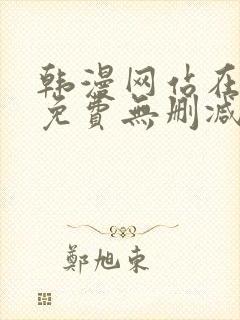 韩漫网站在
免費無删减
鄭旭東